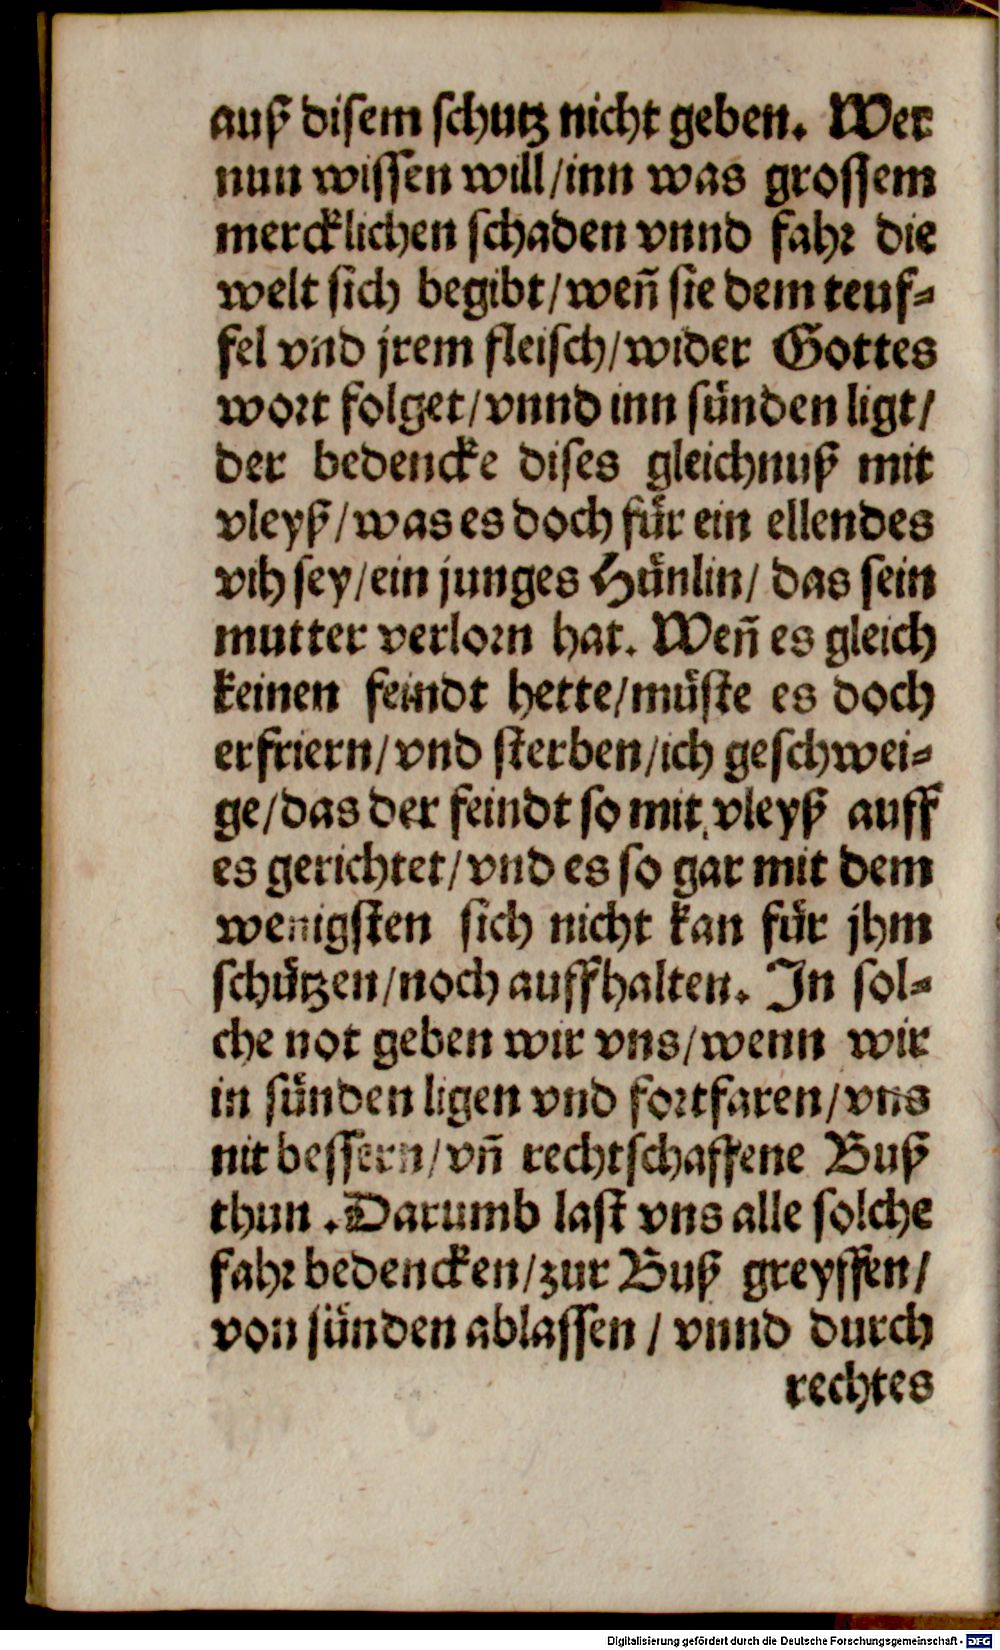 auß disem schutz nicht geben. Wer
nun wissen will/inn was grossem
mercklichen schaden vnnd fahr die
welt sich begibt/weñ sie dem teuf⸗
fel vnd jrem fleisch/wider Gottes
wort folget/vnnd inn sünden ligt/
der bedencke dises gleichnuß mit
vleyß/was es doch für ein ellendes
vih sey/ein junges Hünlin/ das sein
mutter verlorn hat. Weñ es gleich
keinen feindt hette/müste es doch
erfriern/vnd sterben/ich geschwei⸗
ge/das der feindt so mit vleyß auff
es gerichtet/vnd es so gar mit dem
wenigsten sich nicht kan für jhm
schützen/noch auffhalten. In sol⸗
che not geben wir vns/wenn wir
in sünden ligen vnd fortfaren/vns
nit bessern/vñ rechtschaffene Buß
thun. Darumb last vns alle solche
fahr bedencken/zur Buß greyffen/
von sünden ablassen / vnnd durch
rechtes
Digitalisierung gefördert durch die Deutsche Forschungsgemeinschaft - DFG